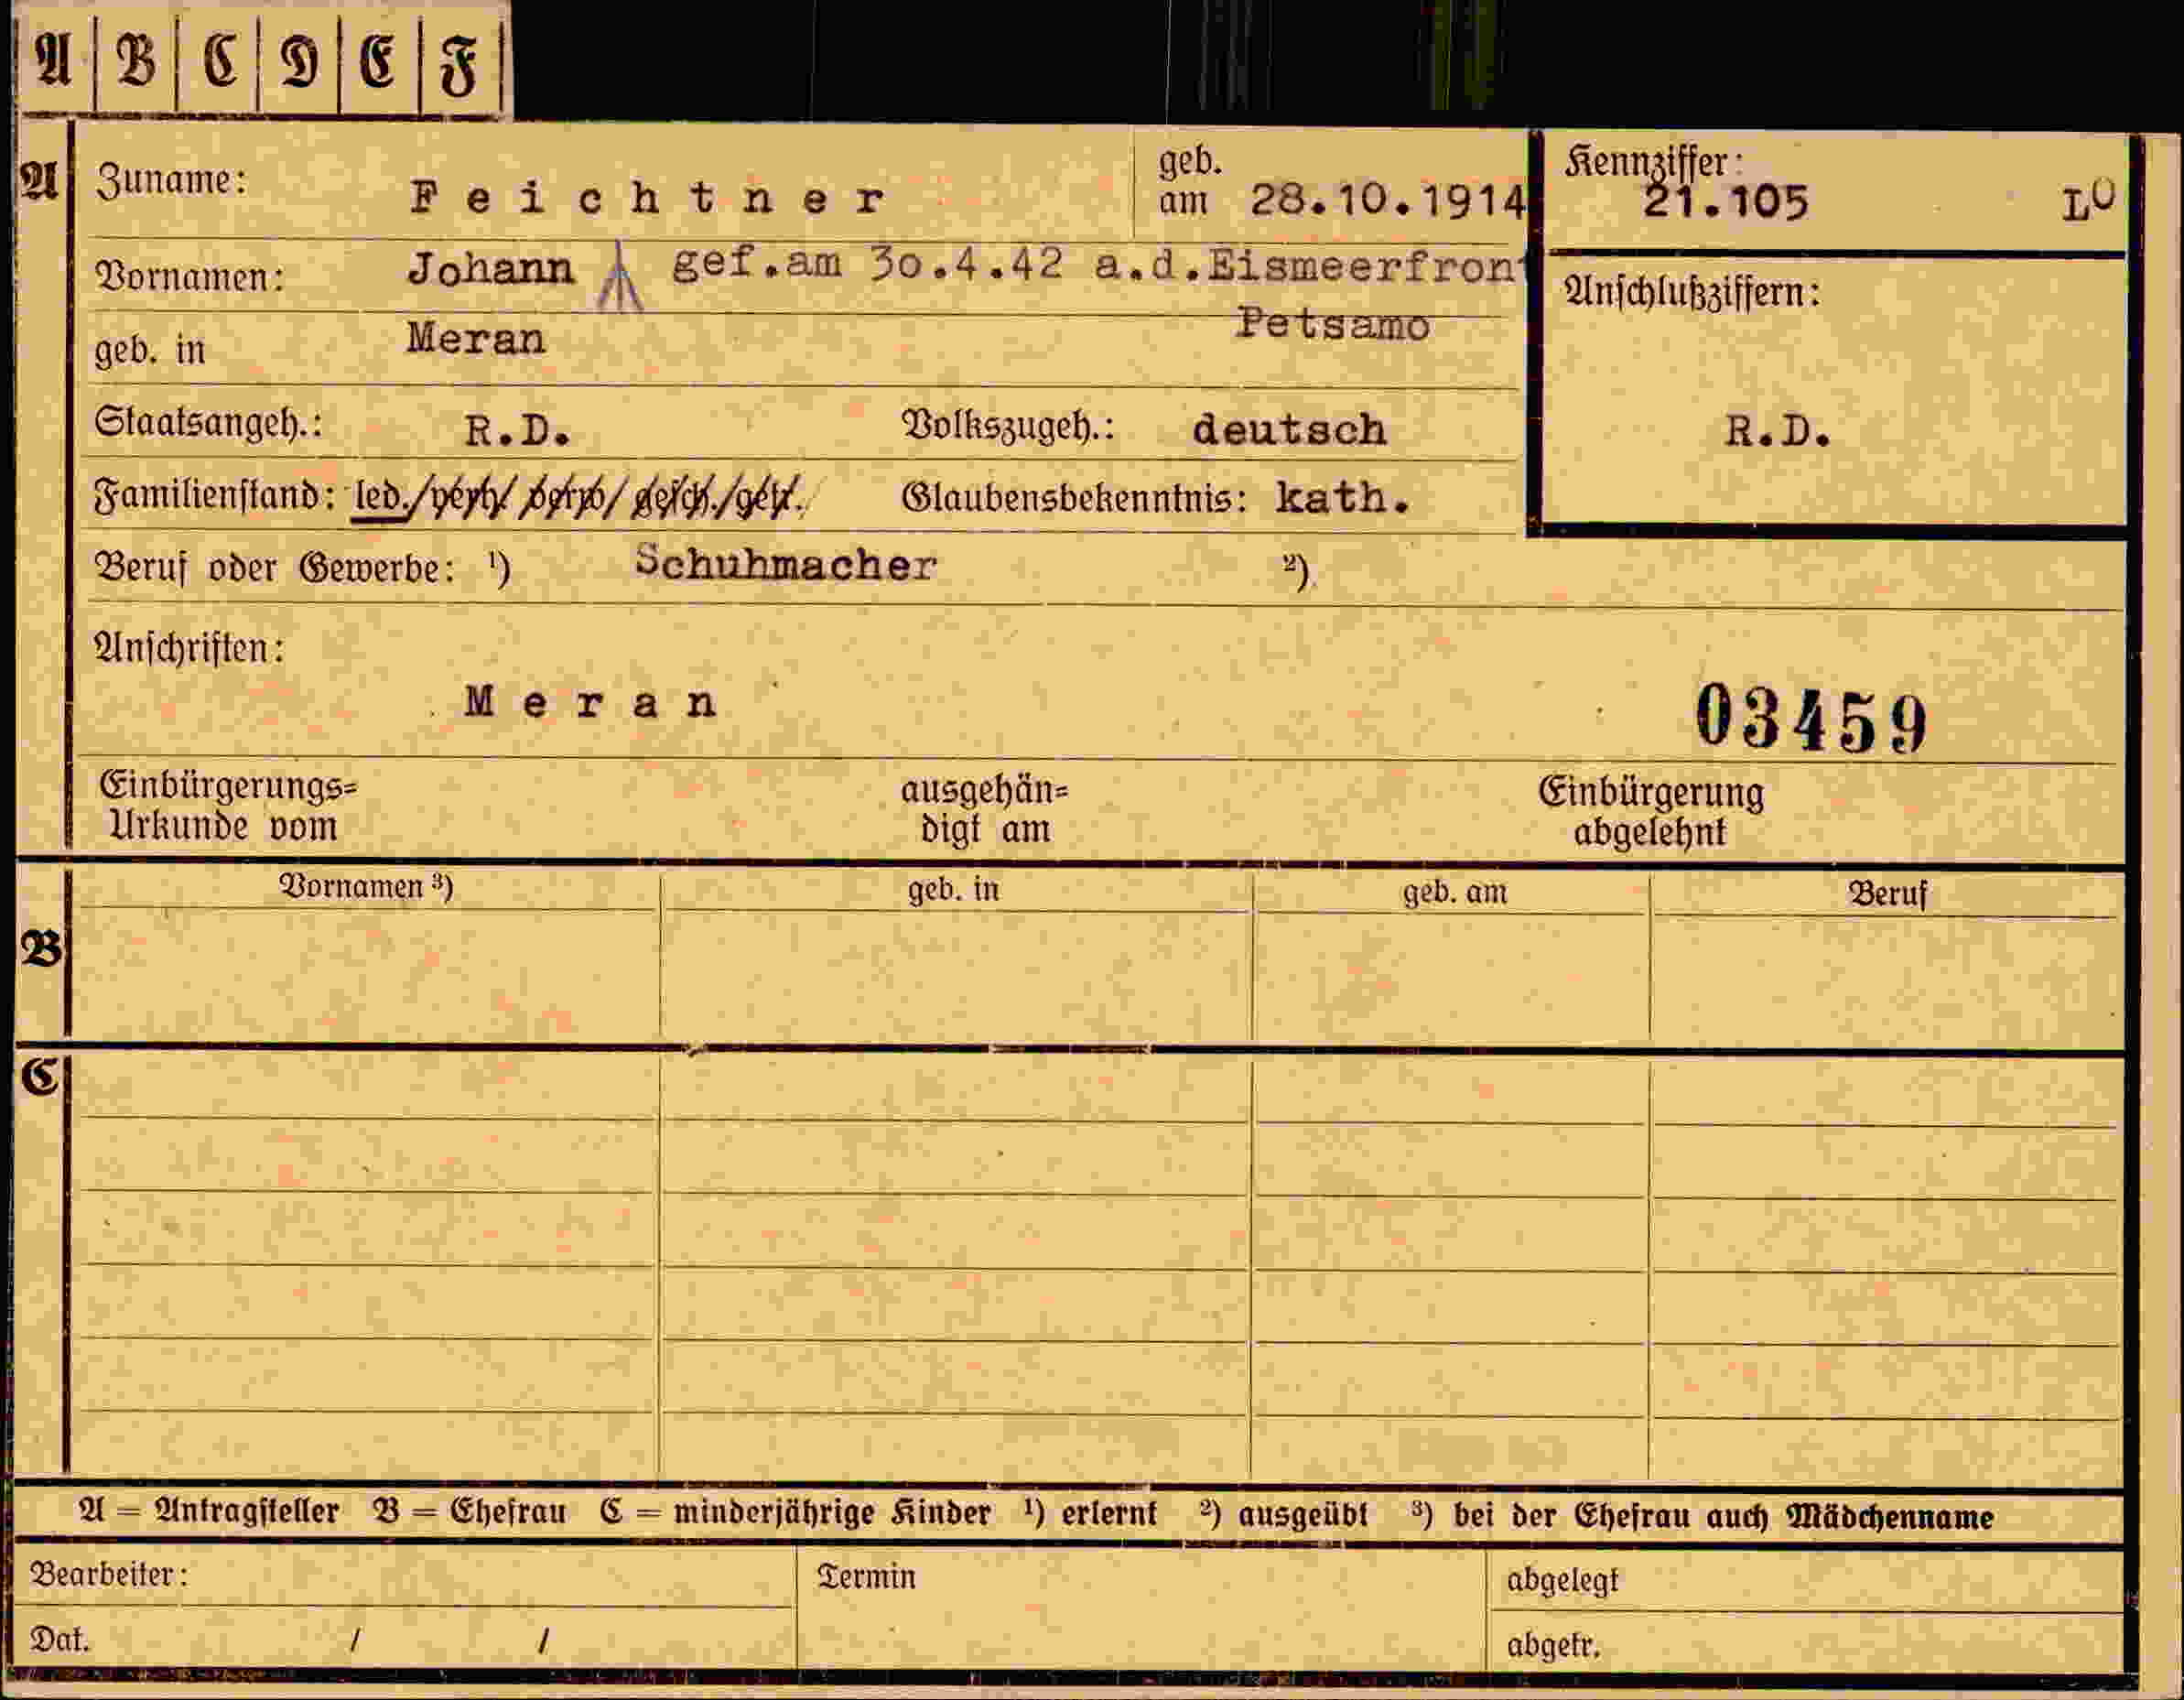 A B C D E F
A Zuname: Feichtner geb. am 28.10.1914 Kennziffer: 21.105 LO
Vornamen: Johann gef.am 30.4.42 a.d.Eismeerfront
Petsamo
Anschlußziffern:
geb. in Meran
Staatsangeh.: R.D. Volkszugeh.: deutsch R.D.
Familienstand: led./verh/ verw/ gesch./getr. Glaubensbekenntnis: kath.
Beruf oder Gewerbe: 1) Schuhmacher 2)
Anschriften:
Meran 03459
Einbürgerungs= ausgehän= Einbürgerung
Urkunde vom digt am abgelehnt
Vornamen 3) geb. in geb. am Beruf
B
C
A = Antragsteller B = Ehefrau C = minderjährige Kinder 1) erlernt 2) ausgeübt 3) bei der Ehefrau auch Mädchenname
Bearbeiter: Termin abgelegt
Dat. / / abgetr.